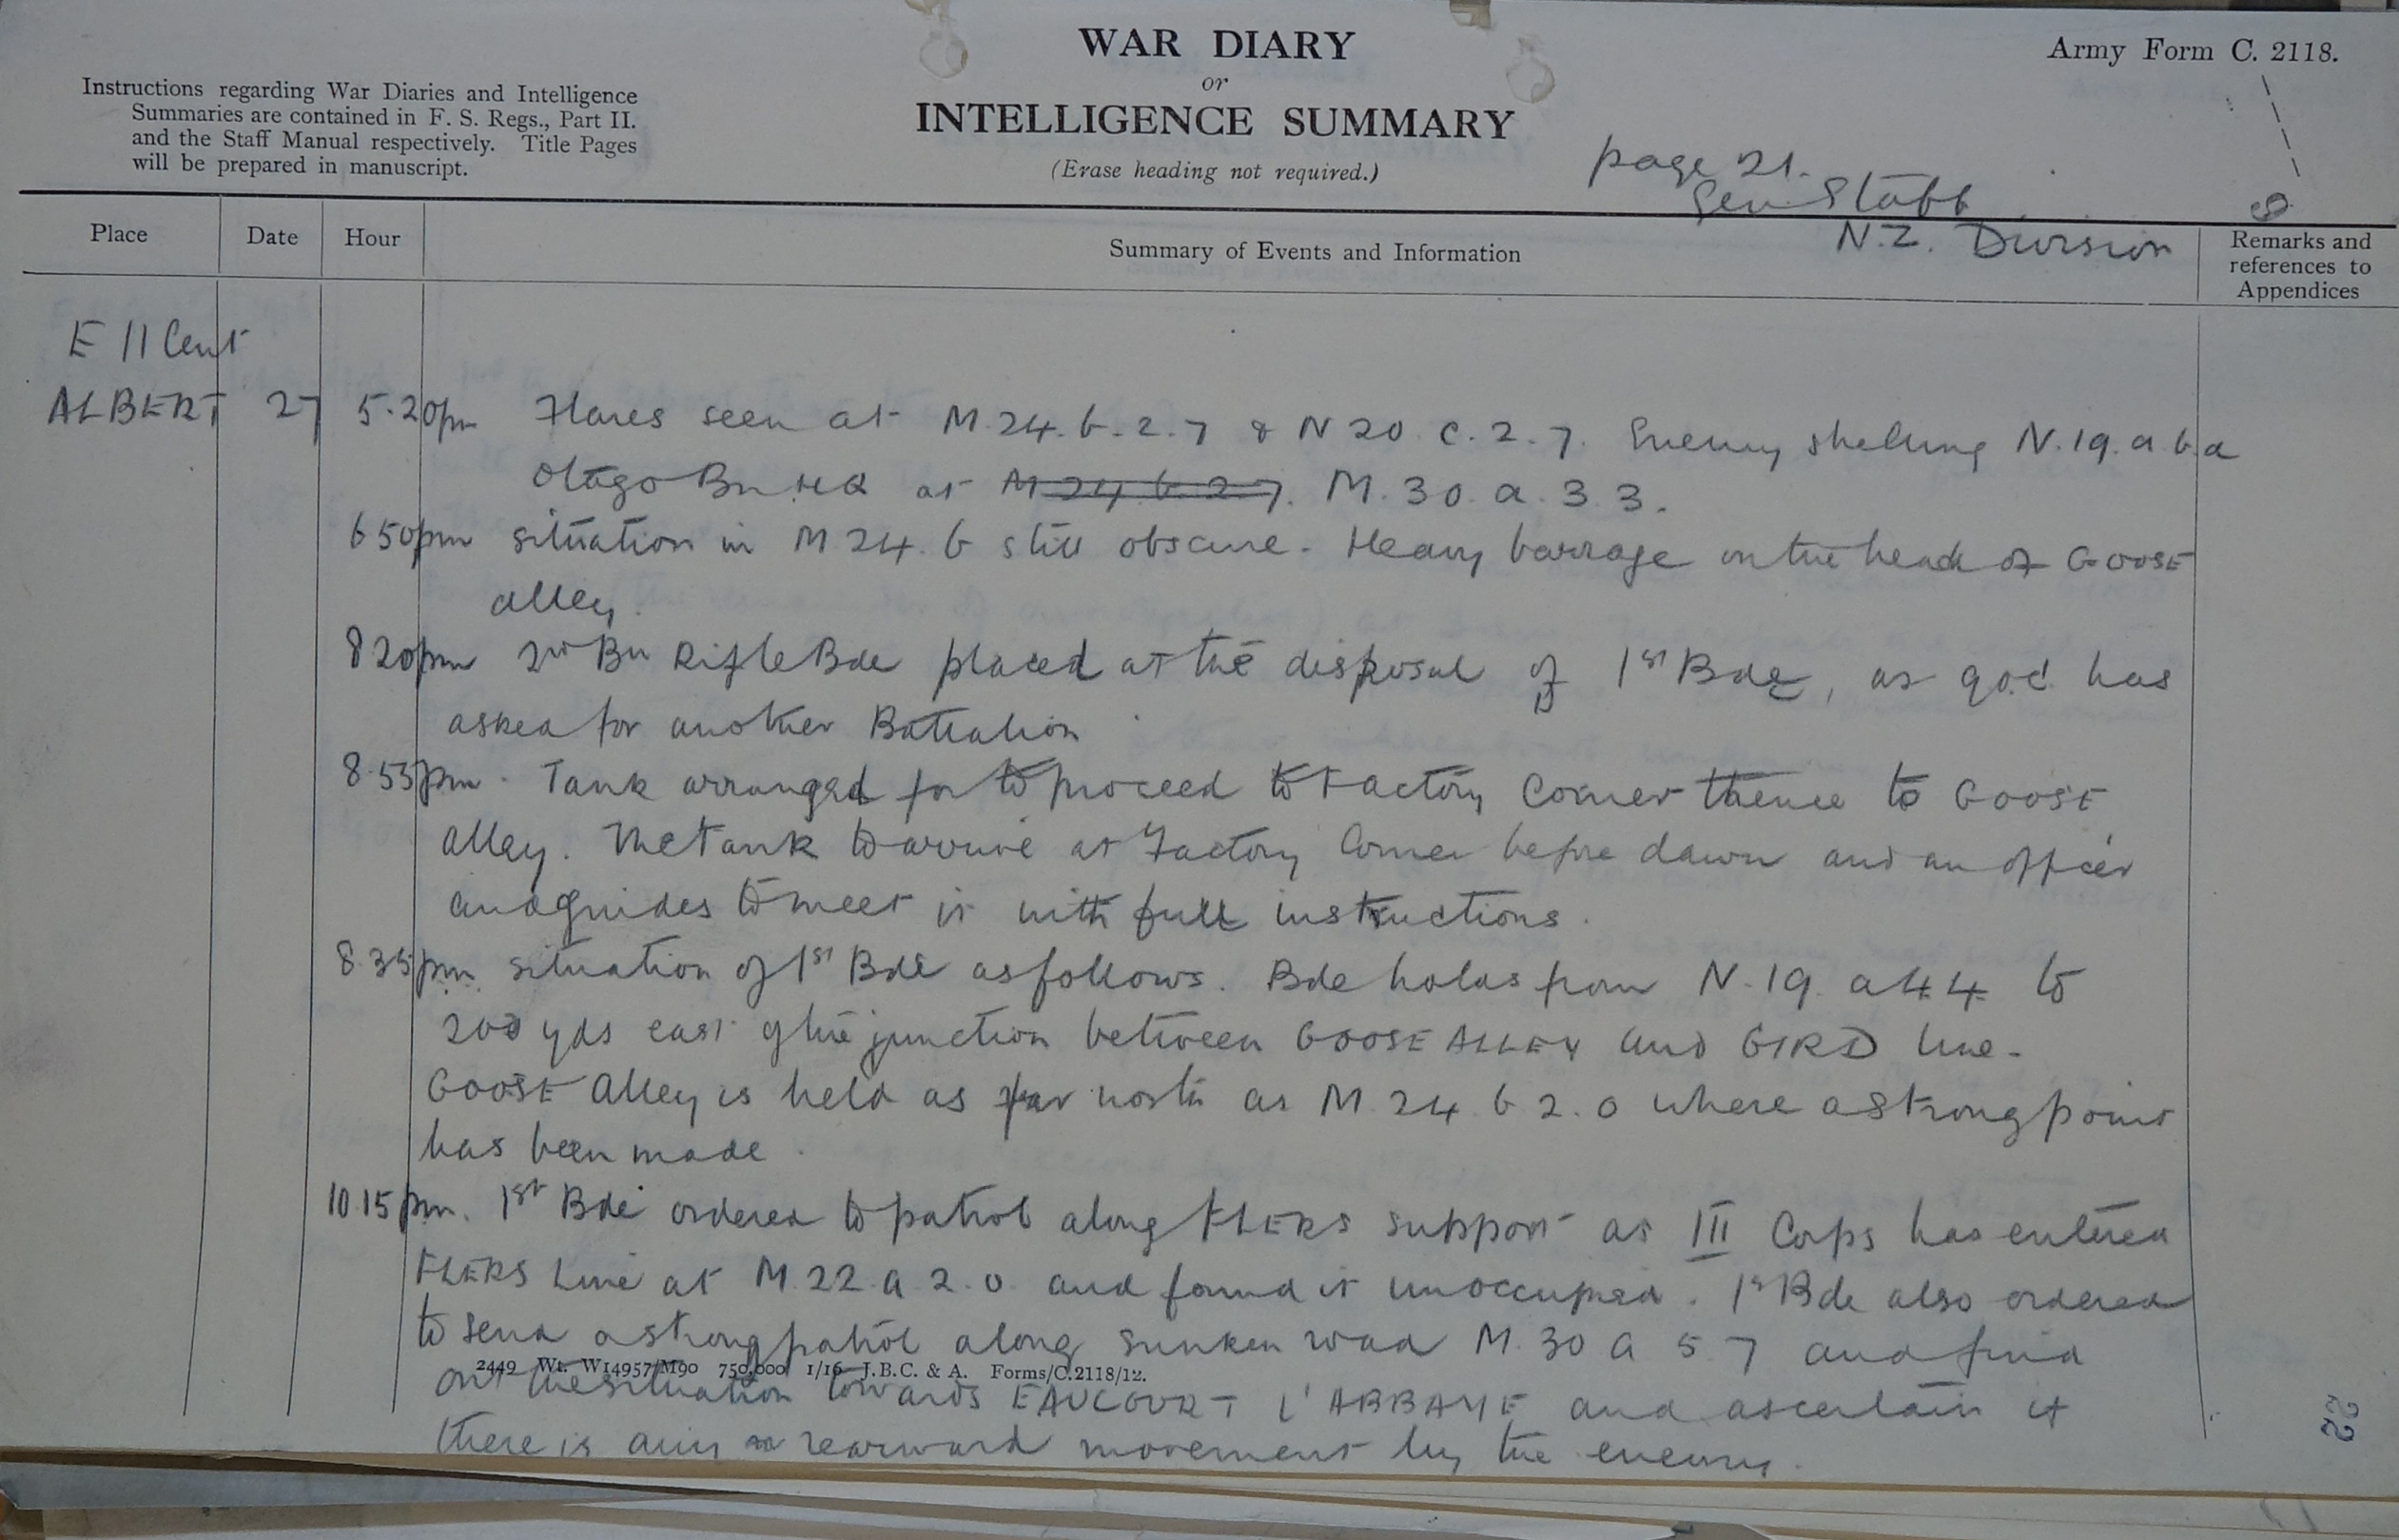 WAR DIARY
or
INTELLIGENCE SUMMARY
(Erase heading not required.)
Army Form C. 2118.
Instructions regarding War Diaries and Intelligence
Summaries are contained in F. S. Regs., Part II.
and the Staff Manual respectively. Title Pages
will be prepared in manuscript.
page 21.
Gen Staff
N.Z. Division
Place
Date
Hour
Summary of Events and Information
Remarks and
references to
Appendices
E 11 Cent
ALBERT 27 5.20pm Flares seen at M.24.b.2.7 & N 20.c.2.7. Enemy shelling N.19.a.b.d
Otago Bn HQ at M 24 b 2.7. M.30.a.3.3.
6 50pm situation in M 24.b still obscure. Heavy barrage on the head of GOOSE
alley.
8 20pm 2nd Bn Rifle Bde placed at the disposal of 1st Bde, as goc has
asked for another Battalion
8.53pm. Tank arranged for to proceed to Factory Corner thence to GOOSE
alley. The Tank to arrive at Factory Corner before dawn and an officer
and guides to meet it with full instructions.
8.35pm. situation of 1st Bde as follows. Bde holds from N.19.a 4.4 to
200 yds east of the junction between GOOSE ALLEY and GIRD line.
GOOSE Alley is held as far north as M 24 b 2.0 where a strong point
has been made.
10 15pm. 1st Bde ordered to patrol along FLERS support as III Corps has entered
FLERS Line at M.22.a.2.0. and found it unoccupied. 1st Bde also ordered
to send a strong patrol along sunken road M.30 a 5.7 and find
out the situation towards EAUCOURT L'ABBAYE and ascertain if
there is any rearward movement by the enemy.
2449 Wt. W14957/M90 750,000 1/16 J.B.C. & A. Forms/C.2118/12.
22